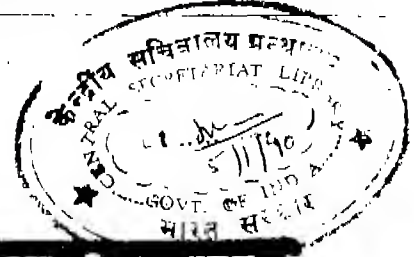 केन्द्रीय सचिवालय ग्रन्था
CENTRAL SECRETARIAT LIBRARY
5/11/90
GOVT. OF INDIA
भारत सरकार